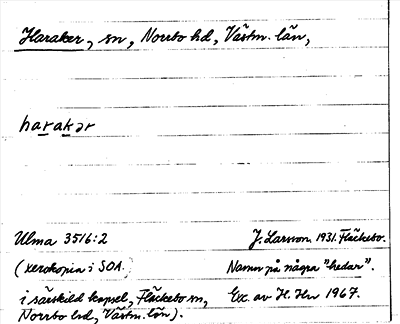 Haraker, sn, Norrbo hd, Västm. län,
harakər
Ulma 3516:2 J. Larsson 1931. Fläckebo.
(xerokopia i SOA. Namn på några "hedar".
i särskild kapsel, Fläckebo sn, Exc. av H. Hn 1967.
Norrbo hd, Västm. län).